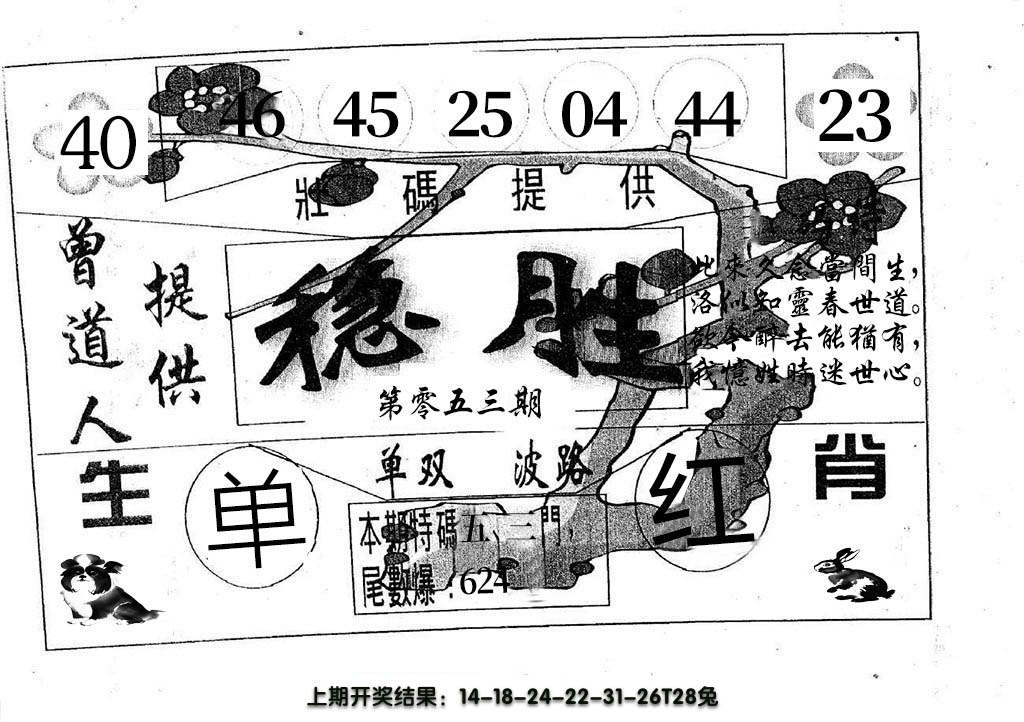 40 46 45 25 04 44 23
壯碼提供
曾道人
提供
稳胜
第零五三期
此來久念當間生，
洛似知靈春世道。
欲令醉去能猶有，
我憶姓時迷世心。
单双 波路
生肖
单
红
本期特碼五、三門，
尾數爆：624
上期开奖结果：14-18-24-22-31-26T28兔